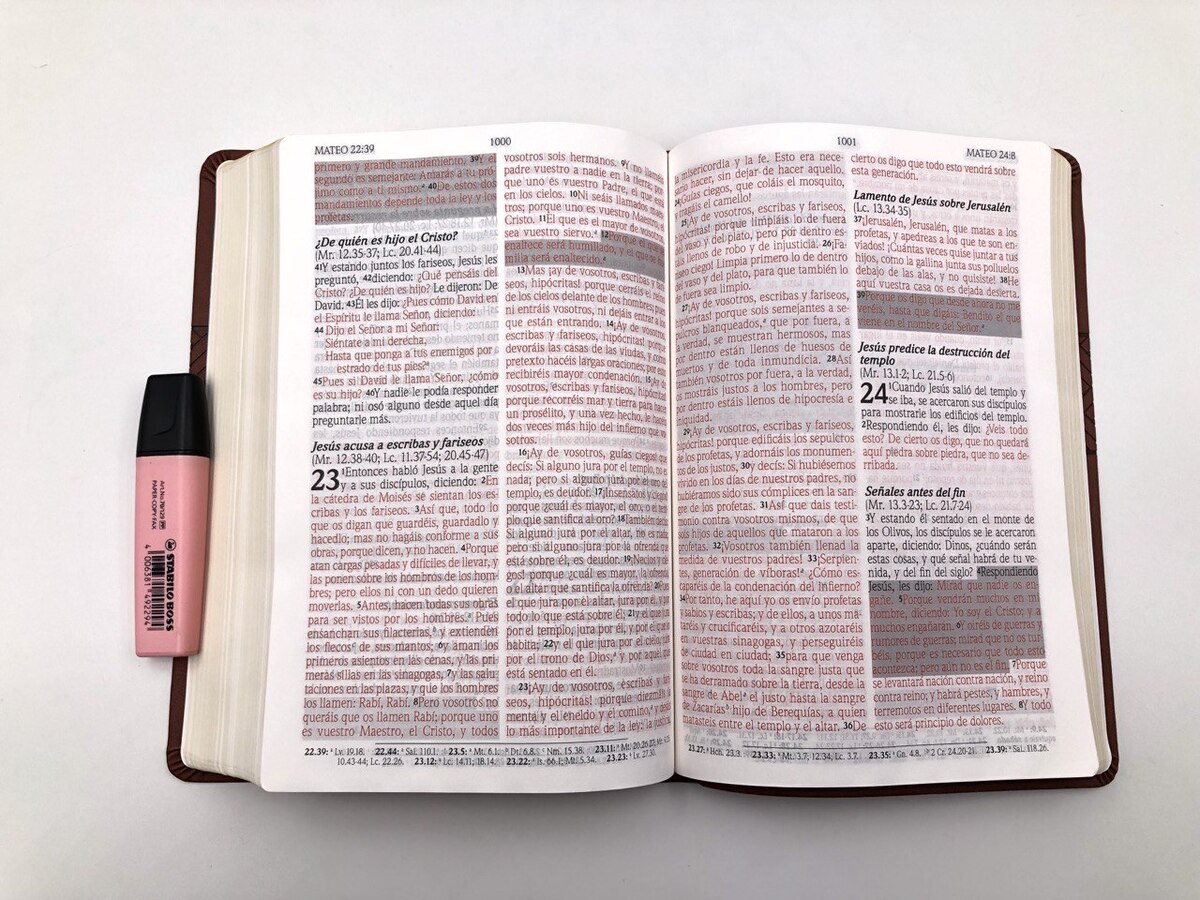 MATEO 22:39
1000
primero y grande mandamiento. 39Y el
segundo es semejante: Amarás a tu pró-
jimo como a ti mismo.ª 40De estos dos
mandamientos depende toda la ley y los
profetas.
¿De quién es hijo el Cristo?
(Mr. 12.35-37; Lc. 20.41-44)
41Y estando juntos los fariseos, Jesús les
preguntó, 42diciendo: ¿Qué pensáis del
Cristo? ¿De quién es hijo? Le dijeron: De
David. 43Él les dijo: ¿Pues cómo David en
el Espíritu le llama Señor, diciendo:
44 Dijo el Señor a mi Señor:
Siéntate a mi derecha,
Hasta que ponga a tus enemigos por
estrado de tus pies?ª
45Pues si David le llama Señor, ¿cómo
es su hijo? 46Y nadie le podía responder
palabra; ni osó alguno desde aquel día
preguntarle más.
Jesús acusa a escribas y fariseos
(Mr. 12.38-40; Lc. 11.37-54; 20.45-47)
23 1Entonces habló Jesús a la gente
y a sus discípulos, diciendo: 2En
la cátedra de Moisés se sientan los es-
cribas y los fariseos. 3Así que, todo lo
que os digan que guardéis, guardadlo y
hacedlo; mas no hagáis conforme a sus
obras, porque dicen, y no hacen. 4Porque
atan cargas pesadas y difíciles de llevar, y
las ponen sobre los hombros de los hom-
bres; pero ellos ni con un dedo quieren
moverlas. 5Antes, hacen todas sus obras
para ser vistos por los hombres. Pues
ensanchan sus filacterias, y extienden
los flecos de sus mantos; 6y aman los
primeros asientos en las cenas, y las pri-
meras sillas en las sinagogas, 7y las salu-
taciones en las plazas, y que los hombres
los llamen: Rabí, Rabí. 8Pero vosotros no
queráis que os llamen Rabí; porque uno
es vuestro Maestro, el Cristo, y todos
vosotros sois hermanos. 9Y no llaméis
padre vuestro a nadie en la tierra; por-
que uno es vuestro Padre, el que está
en los cielos. 10Ni seáis llamados maes-
tros; porque uno es vuestro Maestro, el
Cristo. 11El que es el mayor de vosotros,
sea vuestro siervo. 12Porque el que se
enaltece será humillado, y el que se hu-
milla será enaltecido.
13Mas ¡ay de vosotros, escribas y fari-
seos, hipócritas! porque cerráis el reino
de los cielos delante de los hombres; pues
ni entráis vosotros, ni dejáis entrar a los
que están entrando. 14¡Ay de vosotros,
escribas y fariseos, hipócritas! porque
devoráis las casas de las viudas, y como
pretexto hacéis largas oraciones; por esto
recibiréis mayor condenación. 15¡Ay de
vosotros, escribas y fariseos, hipócritas!
porque recorréis mar y tierra para hacer
un prosélito, y una vez hecho, le hacéis
dos veces más hijo del infierno que vo-
sotros.
16¡Ay de vosotros, guías ciegos! que
decís: Si alguno jura por el templo, no es
nada; pero si alguno jura por el oro del
templo, es deudor. 17¡Insensatos y ciegos!
porque ¿cuál es mayor, el oro, o el tem-
plo que santifica al oro? 18También decís:
Si alguno jura por el altar, no es nada;
pero si alguno jura por la ofrenda que
está sobre él, es deudor. 19¡Necios y cie-
gos! porque ¿cuál es mayor, la ofrenda,
o el altar que santifica la ofrenda? 20Pues
el que jura por el altar, jura por él, y por
todo lo que está sobre él; 21y el que jura
por el templo, jura por él, y por el que lo
habita; 22y el que jura por el cielo, jura
por el trono de Dios, y por aquel que
está sentado en él.
23¡Ay de vosotros, escribas y fari-
seos, hipócritas! porque diezmáis la
menta y el eneldo y el comino, y dejáis
lo más importante de la ley: la justicia,
22.39: ª Lv. 19.18. 22.44: ª Sal. 110.1. 23.5: ª Mt. 6.1. Dt. 6.8. Nm. 15.38. 23.11: ª Mt. 20.26-27;
10.43-44; Lc. 22.26. 23.12: ª Lc. 14.11; 18.14. 23.22: ª Is. 66.1; Mt. 5.34. 23.23: ª Lv. 27.30.
1001
MATEO 24:8
la misericordia y la fe. Esto era nece-
sario hacer, sin dejar de hacer aquello.
24¡Guías ciegos, que coláis el mosquito,
y tragáis el camello!
25¡Ay de vosotros, escribas y fariseos,
hipócritas! porque limpiáis lo de fuera
del vaso y del plato, pero por dentro es-
táis llenos de robo y de injusticia. 26¡Fa-
riseo ciego! Limpia primero lo de dentro
del vaso y del plato, para que también lo
de fuera sea limpio.
27¡Ay de vosotros, escribas y fariseos,
hipócritas! porque sois semejantes a se-
pulcros blanqueados,ª que por fuera, a
la verdad, se muestran hermosos, mas
por dentro están llenos de huesos de
muertos y de toda inmundicia. 28Así
también vosotros por fuera, a la verdad,
os mostráis justos a los hombres, pero
por dentro estáis llenos de hipocresía e
iniquidad.
29¡Ay de vosotros, escribas y fariseos,
hipócritas! porque edificáis los sepulcros
de los profetas, y adornáis los monumen-
tos de los justos, 30y decís: Si hubiésemos
vivido en los días de nuestros padres, no
hubiéramos sido sus cómplices en la san-
gre de los profetas. 31Así que dais testi-
monio contra vosotros mismos, de que
sois hijos de aquellos que mataron a los
profetas. 32¡Vosotros también llenad la
medida de vuestros padres! 33¡Serpien-
tes, generación de víboras!ª ¿Cómo es-
caparéis de la condenación del infierno?
34Por tanto, he aquí yo os envío profetas
y sabios y escribas; y de ellos, a unos ma-
taréis y crucificaréis, y a otros azotaréis
en vuestras sinagogas, y perseguiréis
de ciudad en ciudad; 35para que venga
sobre vosotros toda la sangre justa que
se ha derramado sobre la tierra, desde la
sangre de Abel el justo hasta la sangre
de Zacarías hijo de Berequías, a quien
matasteis entre el templo y el altar. 36De
cierto os digo que todo esto vendrá sobre
esta generación.
Lamento de Jesús sobre Jerusalén
(Lc. 13.34-35)
37¡Jerusalén, Jerusalén, que matas a los
profetas, y apedreas a los que te son en-
viados! ¡Cuántas veces quise juntar a tus
hijos, como la gallina junta sus polluelos
debajo de las alas, y no quisiste! 38He
aquí vuestra casa os es dejada desierta.
39Porque os digo que desde ahora no me
veréis, hasta que digáis: Bendito el que
viene en el nombre del Señor.ª
Jesús predice la destrucción del
templo
(Mr. 13.1-2; Lc. 21.5-6)
24 1Cuando Jesús salió del templo y
se iba, se acercaron sus discípulos
para mostrarle los edificios del templo.
2Respondiendo él, les dijo: ¿Veis todo
esto? De cierto os digo, que no quedará
aquí piedra sobre piedra, que no sea de-
rribada.
Señales antes del fin
(Mr. 13.3-23; Lc. 21.7-24)
3Y estando él sentado en el monte de
los Olivos, los discípulos se le acercaron
aparte, diciendo: Dinos, ¿cuándo serán
estas cosas, y qué señal habrá de tu ve-
nida, y del fin del siglo? 4Respondiendo
Jesús, les dijo: Mirad que nadie os en-
gañe. 5Porque vendrán muchos en mi
nombre, diciendo: Yo soy el Cristo; y a
muchos engañarán. 6Y oiréis de guerras y
rumores de guerras; mirad que no os tur-
béis, porque es necesario que todo esto
acontezca; pero aún no es el fin. 7Porque
se levantará nación contra nación, y reino
contra reino; y habrá pestes, y hambres, y
terremotos en diferentes lugares. 8Y todo
esto será principio de dolores.
23.27: ª Hch. 23.3. 23.33: ª Mt. 3.7; 12.34; Lc. 3.7. 23.35: ª Gn. 4.8. 2 Cr. 24.20-21. 23.39: ª Sal. 118.26.
Art.-No. 70/129
PAPER-COPY-FAX
STABILO BOSS
4 006381 492294